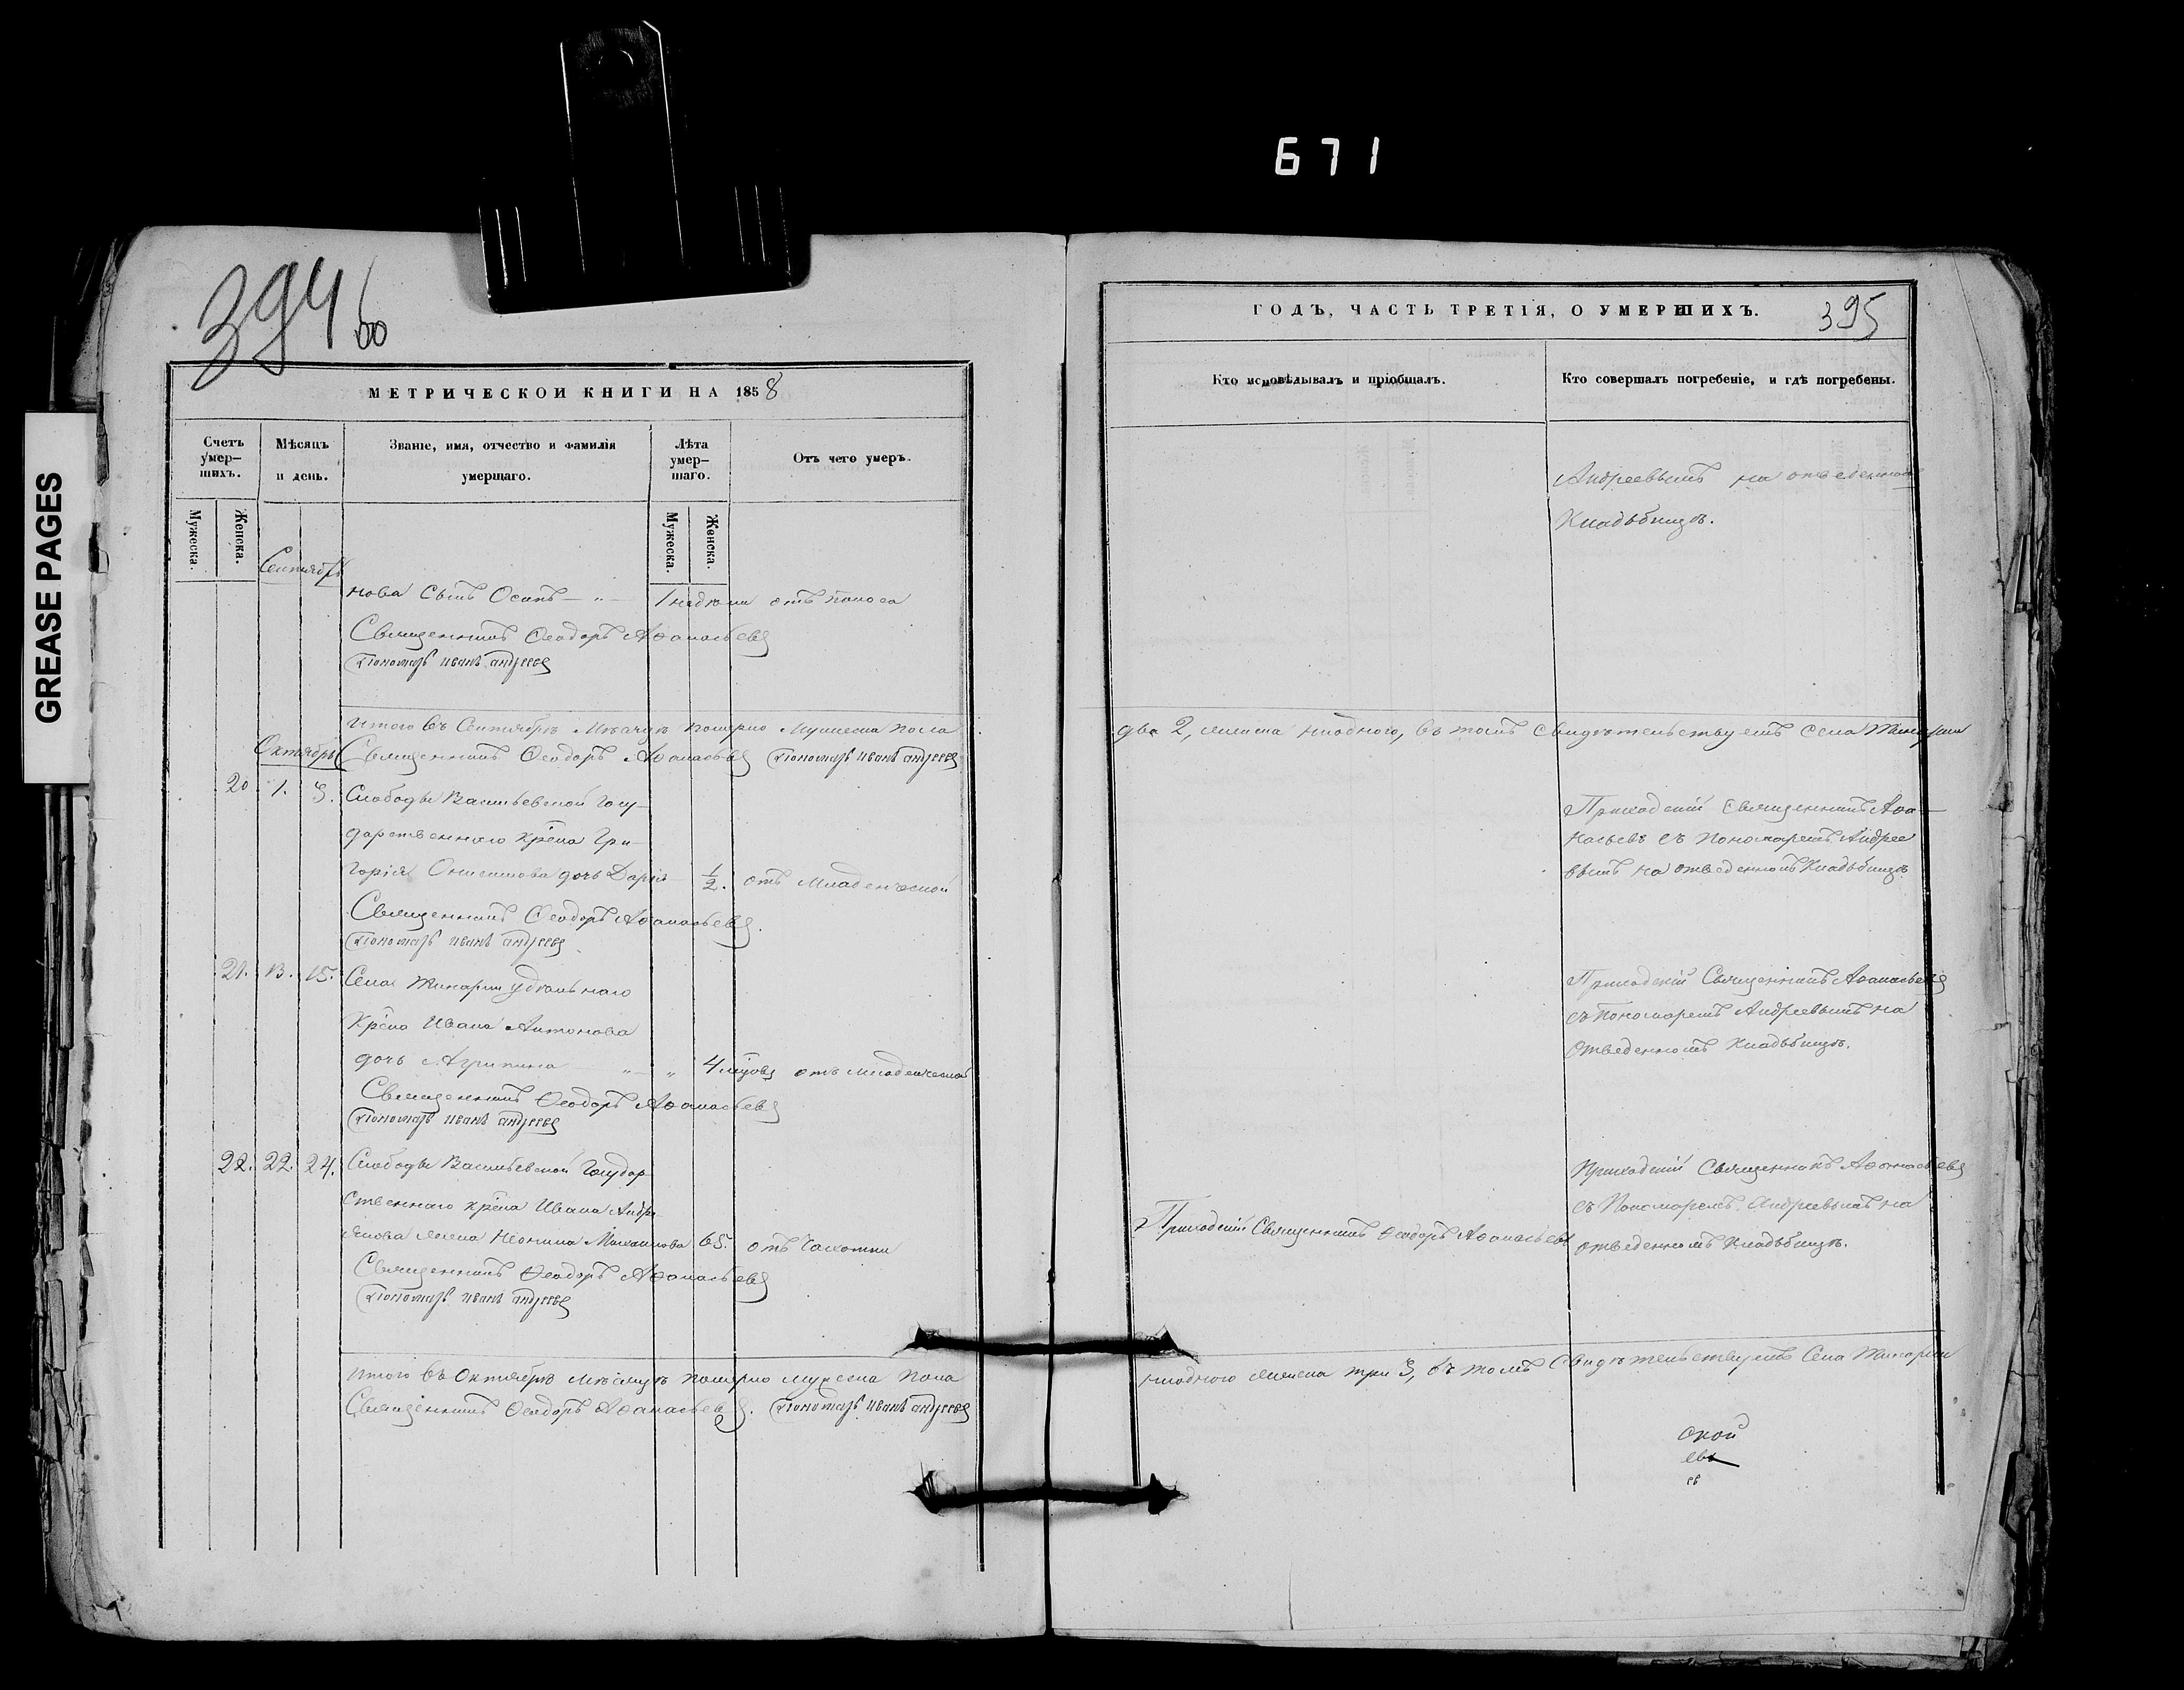 671
GREASE PAGES
394
об
МЕТРИЧЕСКОЙ КНИГИ НА 1858
Счетъ умер-
шихъ.
Мѣсяцъ
и день.
Званіе, имя, отчество и фамилія
умершаго.
Лѣта
умер-
шаго.
Отъ чего умеръ.
Мужеска.
Женска.
Мужеска.
Женска.
Сентябрь
нова Сынъ Осипъ — „ — 1 недѣли отъ поноса
Священникъ Ѳеодоръ Аѳанасьевъ
Пономарь Иванъ Андреевъ
Итого въ Сентябрѣ Мѣсяцѣ померло Мужеска пола
Октябрь
Священникъ Ѳеодоръ Аѳанасьевъ Пономарь Иванъ Андреевъ
20 1. 3. Слободы Васильевской Госу-
дарственнаго Крѣна Гри-
горія дочь Дарія 1/2. отъ Младенческой
Священникъ Ѳеодоръ Аѳанасьевъ.
Пономарь Иванъ Андреевъ
21. 13. 15. Села удѣльнаго
Крѣна Ивана Антонова
дочь Агрипина — „ — „ 4 отъ младенческой
Священникъ Ѳеодоръ Аѳанасьевъ
Пономарь Иванъ Андреевъ
22. 22. 24. Слободы Васильевской Государ-
ственнаго Крѣна Ивана
65. отъ Чахотки
Священникъ Ѳеодоръ Аѳанасьевъ
Пономарь Иванъ Андреевъ
Итого въ Октябрѣ Мѣсяцѣ померло мужеска пола
Священникъ Ѳеодоръ Аѳанасьевъ. Пономарь Иванъ Андреевъ
ГОДЪ, ЧАСТЬ ТРЕТІЯ, О УМЕРШИХЪ.
395
Кто исповѣдывалъ и пріобщалъ.
Кто совершалъ погребеніе, и гдѣ погребены.
Андреевымъ на отведенномъ
Кладбищѣ.
два 2, женска ниодного, въ томъ свидѣтельствуемъ села
Приходскій Священникъ Аѳа-
насьевъ съ Пономаремъ Андрее
вымъ на отведенномъ Кладбищѣ
Приходскій Священникъ Аѳанасьевъ
съ Пономаремъ Андреевымъ на
Отведенномъ Кладбищѣ.
Приходскій Священникъ Аѳанасьевъ
съ Пономаремъ Андреевымъ на
Приходскій Священникъ Ѳеодоръ Аѳанасьевъ
отведенномъ Кладбищѣ.
ниодного женска три 3, въ томъ Свидѣтельствуемъ Села
ской
евъ